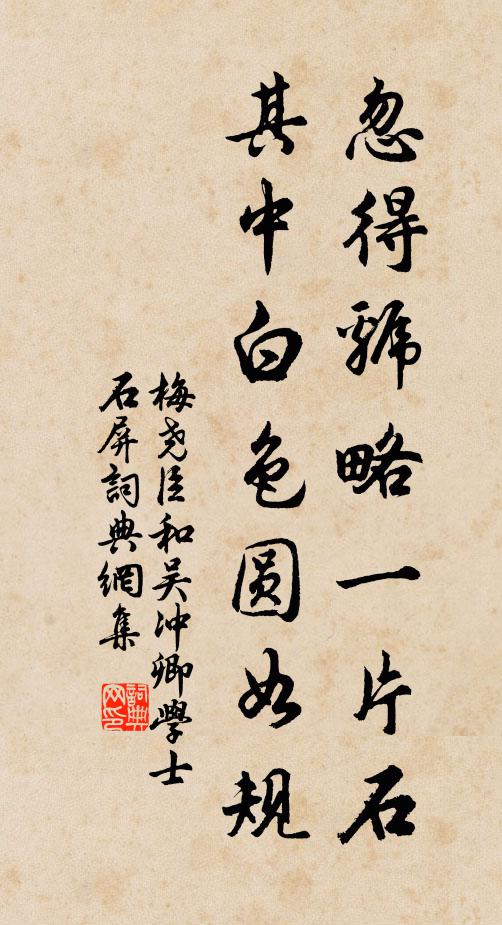 忽得虢略一片石
其中白色圆如规
梅尧臣和吴冲卿學士
石屏詞典網集
詞典
网印